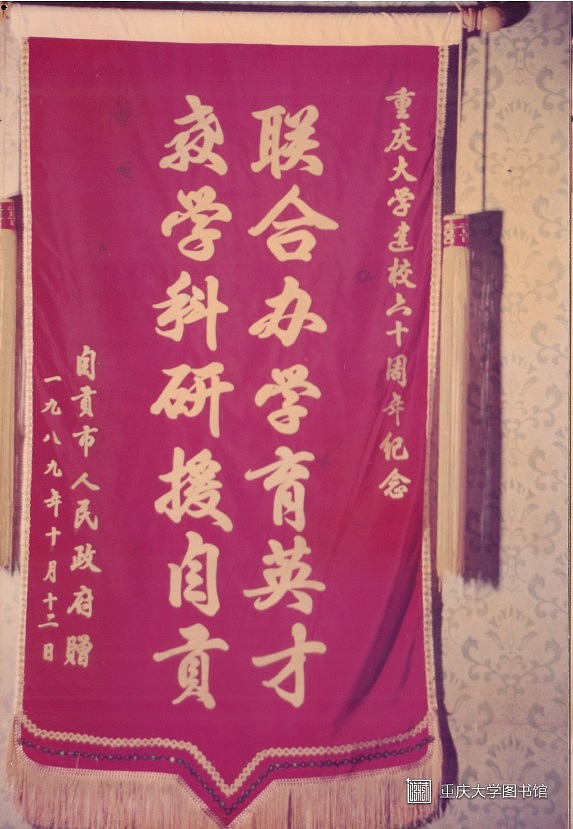 重庆大学建校六十周年纪念
联合办学育英才
教学科研援自贡
自贡市人民政府赠
一九八九年十月十二日
重庆大学图书馆